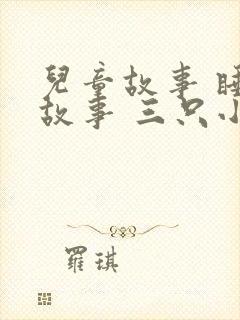 兒童故事
故事 三只
羅琪